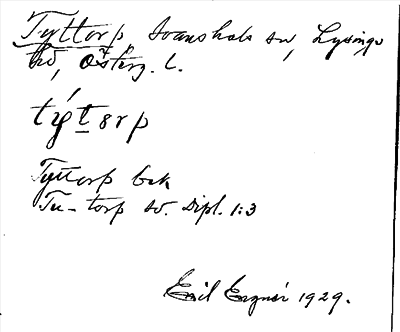 Tyttorp, Svanshals sn, Lysings
hd, Österg. l.
týt8rp
Tyttorp bek
Tu-torp sv. Dipl. 1:3
Emil 1929.